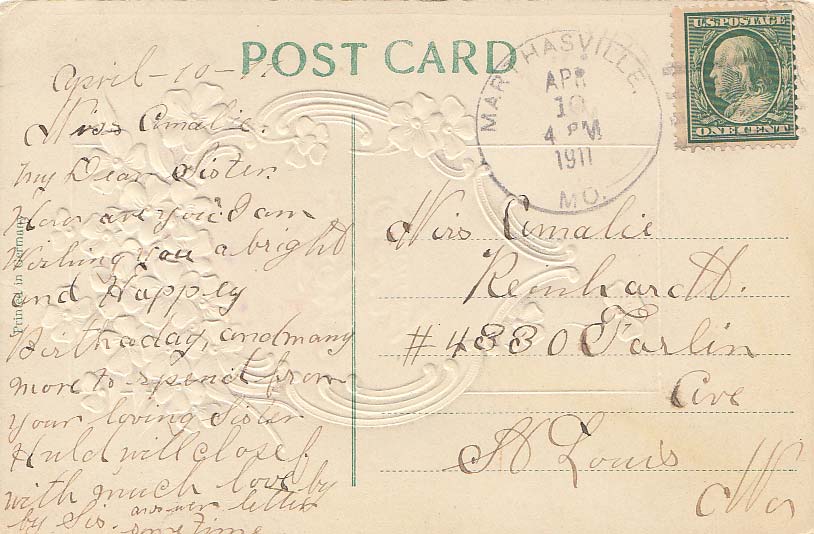 POST CARD
U.S. POSTAGE
ONE CENT
MARTHASVILLE,
APR
10
4 PM
1911
MO.
April-10-11
Miss Amalie.
my Dear Sister.
How are you? I am
Wishing you a bright
and Happey
Birthaday, and many
more to spend from
your loving Sister
Huld will close
with much love by
by Sis. answer letter
some time
Printed in Germany
Miss Amalie
Reinhardt.
#4330 Farlin
Ave
St Louis
Mo